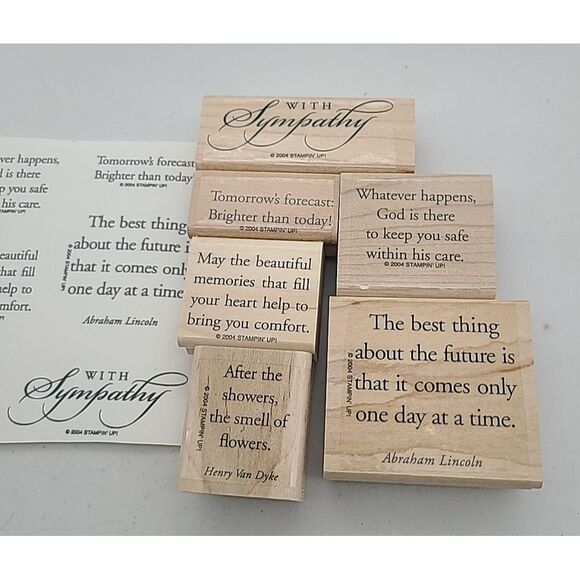 WITH
Sympathy
© 2004 STAMPIN' UP!
Tomorrow's forecast:
Brighter than today!
© 2004 STAMPIN' UP!
Whatever happens,
God is there
to keep you safe
within his care.
© 2004 STAMPIN' UP!
May the beautiful
memories that fill
your heart help to
bring you comfort.
© 2004 STAMPIN' UP!
The best thing
about the future is
that it comes only
one day at a time.
© 2004 STAMPIN' UP!
Abraham Lincoln
After the
showers,
the smell of
flowers.
© 2004 STAMPIN' UP!
Henry Van Dyke
ver happens,
d is there
p you safe
his care.
TAMPIN' UP!
Tomorrow's forecast
Brighter than today
© 2004 STAMPIN' UP!
eautiful
that fill
elp to
mfort.
UP!
The best thing
about the future i
that it comes onl
one day at a time
© 2004 STAMPIN' UP!
Abraham Lincoln
WITH
Sympathy
© 2004 STAMPIN' UP!